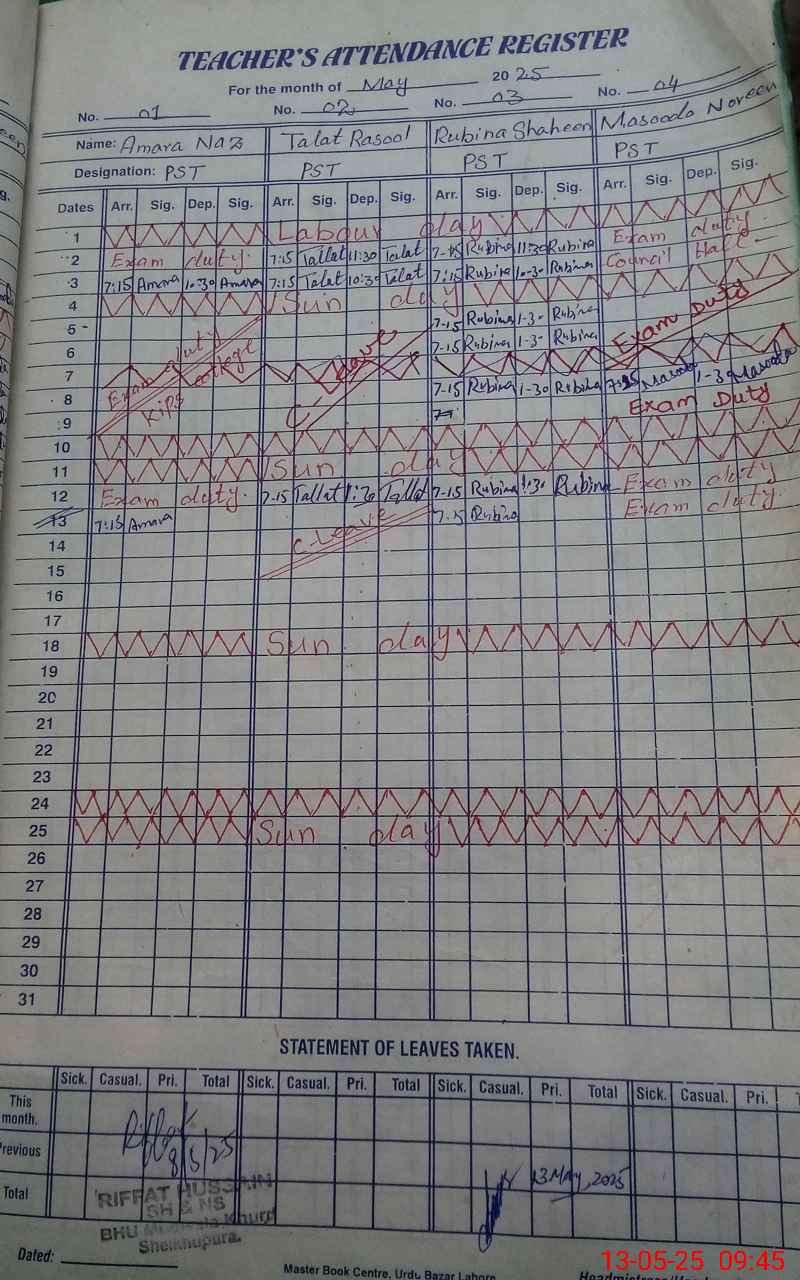 TEACHER'S ATTENDANCE REGISTER
For the month of May 2025
No. 01 No. 02 No. 03 No. 04
Name: Amara Naz Talat Rasool Rubina Shaheen Masooda Noreen
Designation: PST PST PST PST
Dates Arr. Sig. Dep. Sig. Arr. Sig. Dep. Sig. Arr. Sig. Dep. Sig. Arr. Sig. Dep. Sig.
1 Labour day
2 Exam duty. 7:15 Tallat 11:30 Talat 7-15 Rubina 11:30 Rubina Exam duty
3 7:15 Amara 10-30 Amara 7:15 Talat 10:30 Talat 7:15 Rubina 10-30 Rubina Council Hall
4 Sun day
5 7-15 Rubina 1-30 Rubina
6 Exam duty 7-15 Rubina 1-3- Rubina Exam Duty
7 Kips college C leave
8 7-15 Rubina 1-30 Rubina 7:15 Masooda 1-30 Masooda
9 Exam Duty
10
11 Sun day
12 Exam duty. 7-15 Tallat 1:30 Tallat 7-15 Rubina 1:30 Rubina Exam duty
13 7:15 Amara C-Leave 7-15 Rubina Exam duty.
14
15
16
17
18 Sun day
19
20
21
22
23
24
25 Sun day
26
27
28
29
30
31
STATEMENT OF LEAVES TAKEN.
Sick. Casual. Pri. Total Sick. Casual. Pri. Total Sick. Casual. Pri. Total Sick. Casual. Pri.
This month.
Previous
8/5/25
Total
13 May, 2025
RIFFAT HUSSAIN
SH & NS
BHU Khurd
Sheikhupura.
Dated:
Master Book Centre, Urdu Bazar Lahore
13-05-25 09:45